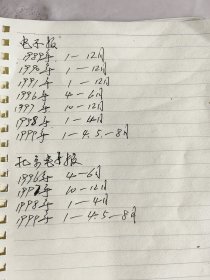 电子报
1989年 1—12月
1990年 1—12月
1991年 1—12月
1996年 4—6月
1997年 10—12月
1998年 1—4月
1999年 1—4.5.—8月
北京电子报
1996年 4—6月
1997年 10—12月
1998年 1—4月
1999年 1—4.5—8月